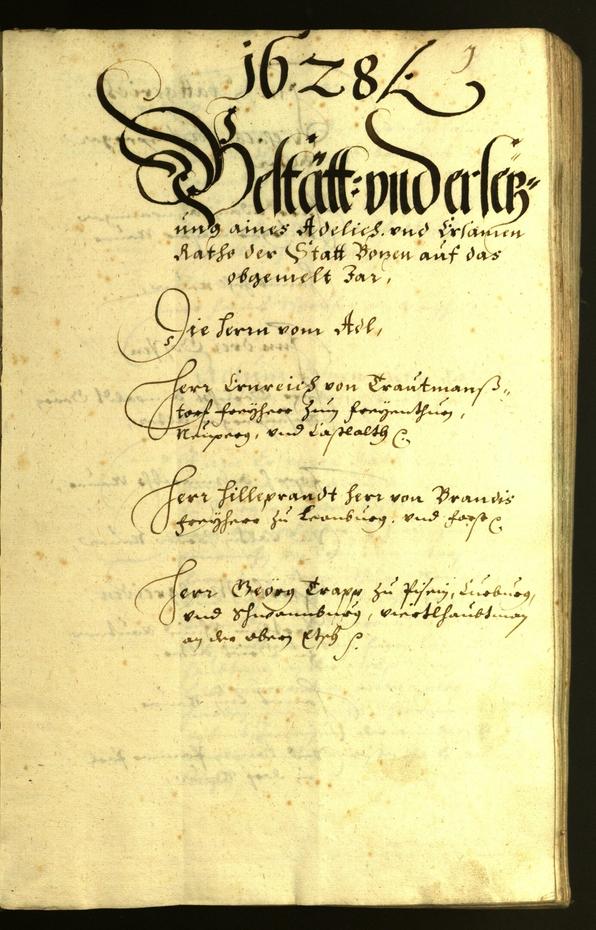 1628
1
Bestätt: vnd ersetz-
ung aines Adelich. vnd Ersamen
Raths der Statt Bozen auf das
obgemelt Jar,
Die herrn vom Adl,
Herr Ernreich von Trautmanß-
torf freyherr zum freyenthurn,
Neuperg, vnd Castlalth
Herr Hilleprandt herr von Brandis
freyherr zu Leonburg, vnd forst
Herr Geörg Trapp zu Pisein, Curburg,
vnd Schwannburg, viertlhaubtman
an der obern Etsch